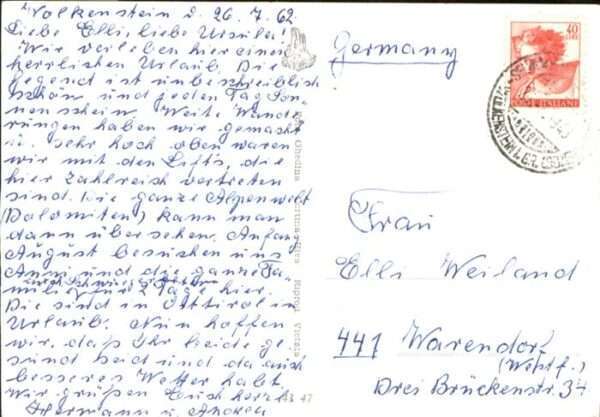 Wolkenstein d. 26.7.62
Liebe Elli, liebe Ursula!
Wir verleben hier einen
herrlichen Urlaub. Die
Gegend ist unbeschreiblich
schön und jeden Tag Son-
nenschein. Weite Wande-
rungen haben wir gemacht
u. sehr hoch oben waren
wir mit den Lift's, die
hier zahlreich vertreten
sind. Die ganze Alpenwelt
(Dolomiten) kann man
dann übersehen. Anfang
August besuchen uns
Anni und die ganze Fa-
milie 2 Tage hier.
Die sind in Osttirol in
Urlaub. Nun hoffen
wir, daß Ihr beide ge-
sund seid und da auch
besseres Wetter habt
Wir grüßen Euch herzl.
Hermann u. Andrea
Germany
40
LIRE
POSTE ITALIANE
Frau
Elli Weiland
441 Warendorf
(Westf.)
Drei Brückenstr. 34
Riprod. Vietata
47